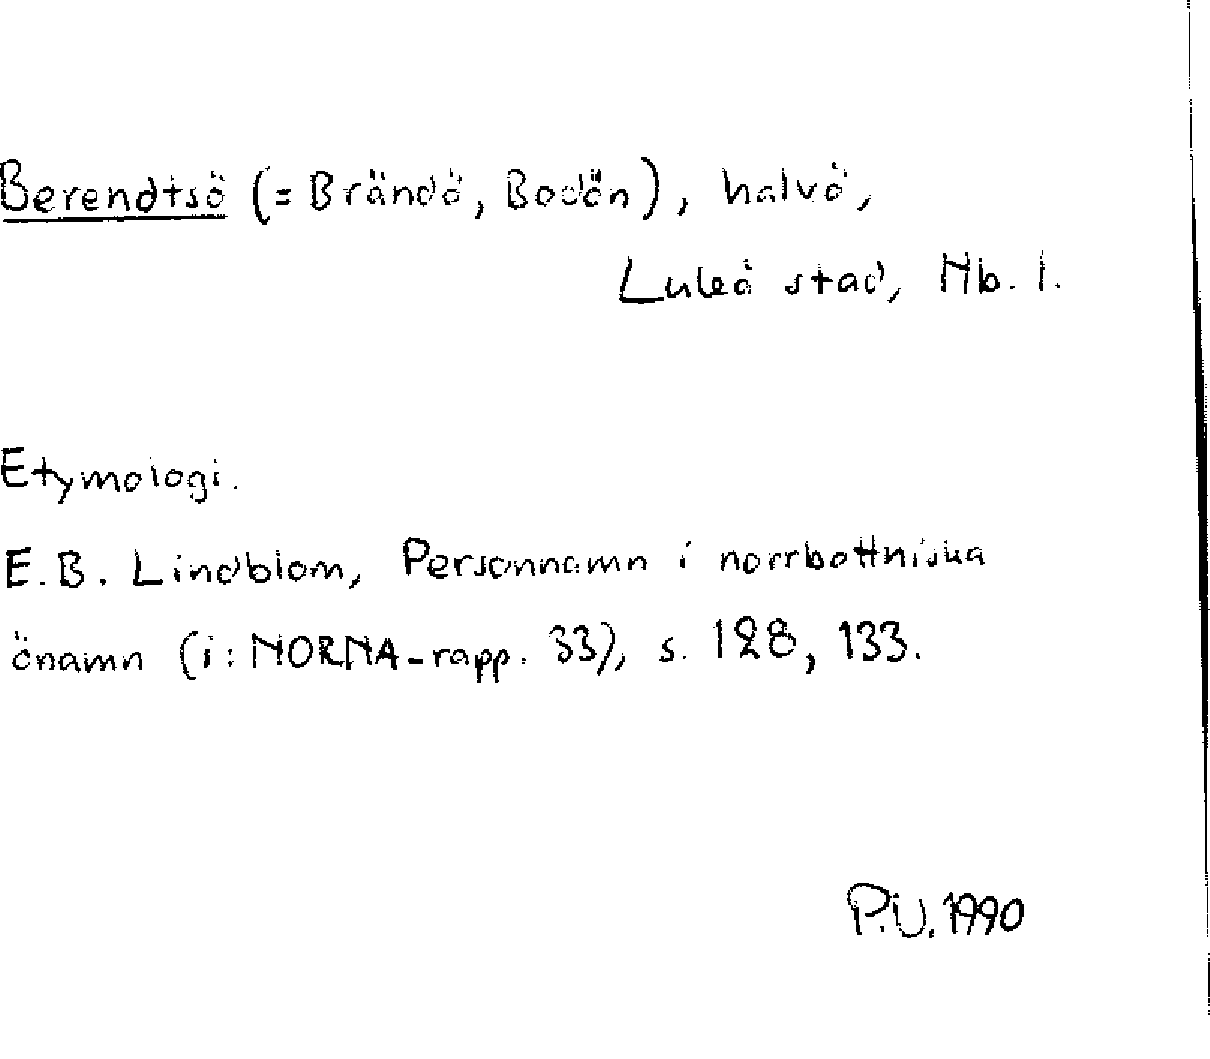 Berendtsö (= Brändö, Bodön), halvö,
Luleå stad, Nb. l.
Etymologi.
E.B. Lindblom, Personnamn i norrbottniska
önamn (i: NORNA-rapp. 33), s. 128, 133.
P.U. 1990